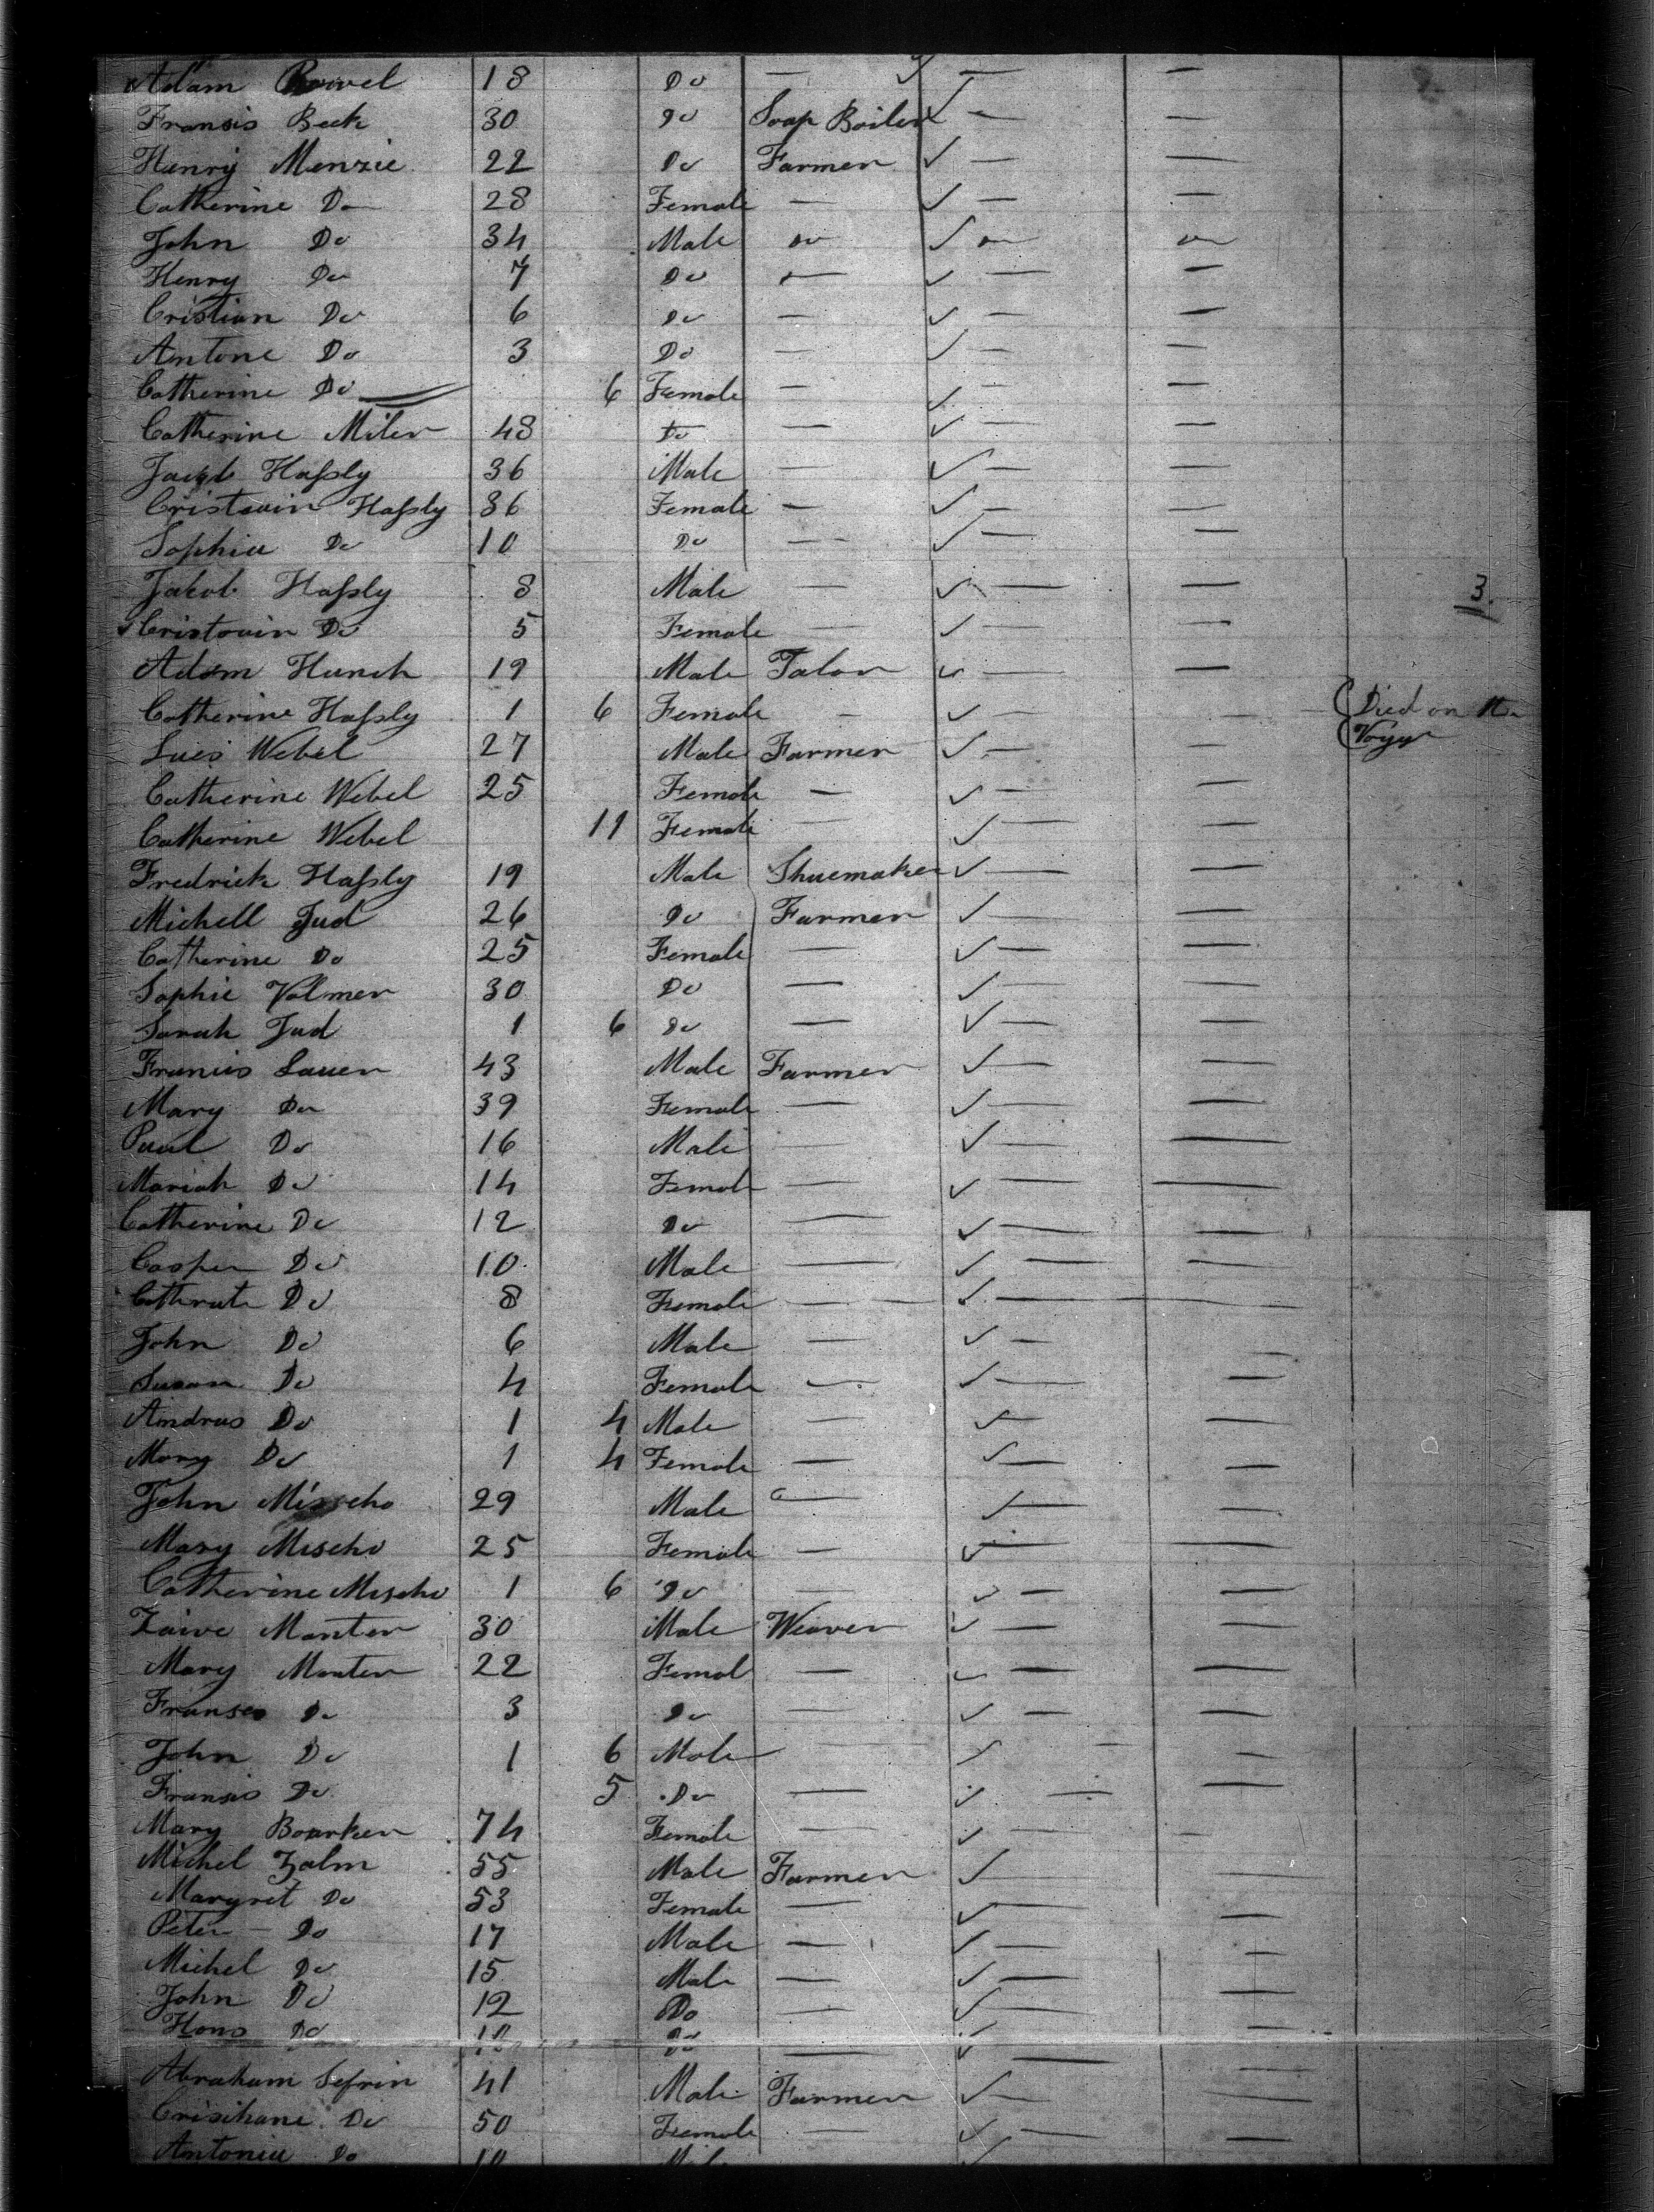 Adam 18 Do — —
Fransis Beck 30 Do Soap Boiler — —
Henry Menzie 22 Do Farmer ✓ — —
Catherine Do 28 Female — ✓ — —
John Do 34 Male Do ✓ Do Do
Henry Do 7 Do — ✓ — —
Cristian Do 6 Do — ✓ — —
Antone Do 3 Do — ✓ — —
Catherine Do 6 Female — ✓ — —
Catherine Miler 48 Do — ✓ — —
Jacob Hassly 36 Male — ✓ — —
Cristouin Hassly 36 Female — ✓ — —
Sophia Do 10 Do — ✓ — —
Jakob Hassly 8 Male — ✓ — — 3.
Cristouin Do 5 Female — ✓ — —
Adam Hunch 19 Male Talor ✓ — —
Catherine Hassly 1 6 Female — ✓ — — Died on the
Luis Webel 27 Male Farmer ✓ — — Voyg
Catherine Webel 25 Female — ✓ — —
Catherine Webel 11 Female — ✓ — —
Fredrick Hassly 19 Male Shuemaker ✓ — —
Michell Jud 26 Do Farmer ✓ — —
Catherine Do 25 Female — ✓ — —
Sophie Volmer 30 Do — ✓ — —
Sarah Jud 1 6 Do — ✓ — —
Francis Lauer 43 Male Farmer ✓ — —
Mary Do 39 Female — ✓ — —
Paul Do 16 Male — ✓ — —
Mariah Do 14 Female — ✓ — —
Catherine Do 12 Do — ✓ — —
Casper Do 10 Male — ✓ — —
Do 8 Female — ✓ — —
John Do 6 Male — ✓ — —
Susan Do 4 Female — ✓ — —
Andras Do 1 4 Male — ✓ — —
Mary Do 1 4 Female — ✓ — —
John Misscho 29 Male — ✓ — —
Mary Mischo 25 Female — ✓ — —
Catherine Mischo 1 6 Do — ✓ — —
Manter 30 Male Weaver ✓ — —
Mary Manter 22 Femal — ✓ — —
Franses Do 3 Do — ✓ — —
John Do 1 6 Male — ✓ — —
Fransis Do 5 Do — ✓ — —
Mary Boarker 74 Female — ✓ — —
Michel Zalm 55 Male Farmer ✓ — —
Margret Do 53 Female — ✓ — —
Peter Do 17 Male — ✓ — —
Michel Do 15 Male — ✓ — —
John Do 12 Do — ✓ — —
Hans Do 10 Do — ✓ — —
Abraham Sefrin 41 Male Farmer ✓ — —
Do 50 Female — ✓ — —
Antonia Do 10